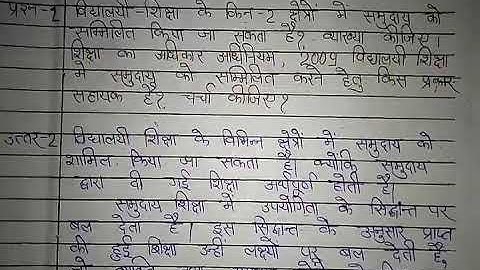 प्रश्न-2 विद्यालयी शिक्षा के किन-2 क्षेत्रों में समुदाय को
सम्मिलित किया जा सकता है? व्याख्या कीजिए।
शिक्षा का अधिकार अधिनियम, 2009 विद्यालयी शिक्षा
में समुदाय को सम्मिलित करने हेतु किस प्रकार
सहायक है? चर्चा कीजिए?
उत्तर-2 विद्यालयी शिक्षा के विभिन्न क्षेत्रों में समुदाय को
शामिल किया जा सकता है। क्योंकि समुदाय
द्वारा दी गई शिक्षा अर्थपूर्ण होती है।
समुदाय शिक्षा में उपयोगिता के सिद्धान्त पर
बल देता है। इस सिद्धान्त के अनुसार प्राप्त
की हुई शिक्षा उन्हीं लक्ष्यों पर बल देती है,